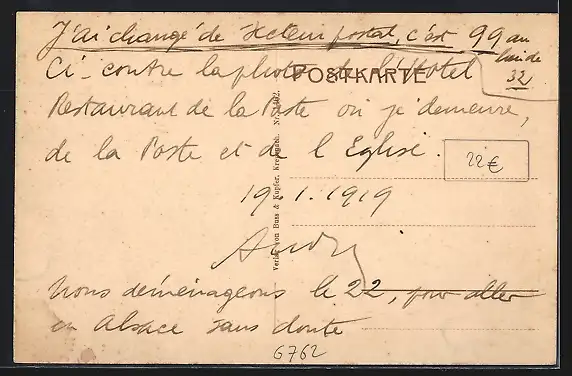 J'ai changé de secteur postal, c'est 99 au
lieu de
32
Ci-contre la photo de l'Hotel
POSTKARTE
Restaurant de la Poste où je demeure,
de la Poste et de l'Eglise.
22€
19.1.1919
André
Nous déménageons le 22, pour aller
en Alsace sans doute
6762
Verlag von Buss & Kupfer, Kreuznach. Nr.